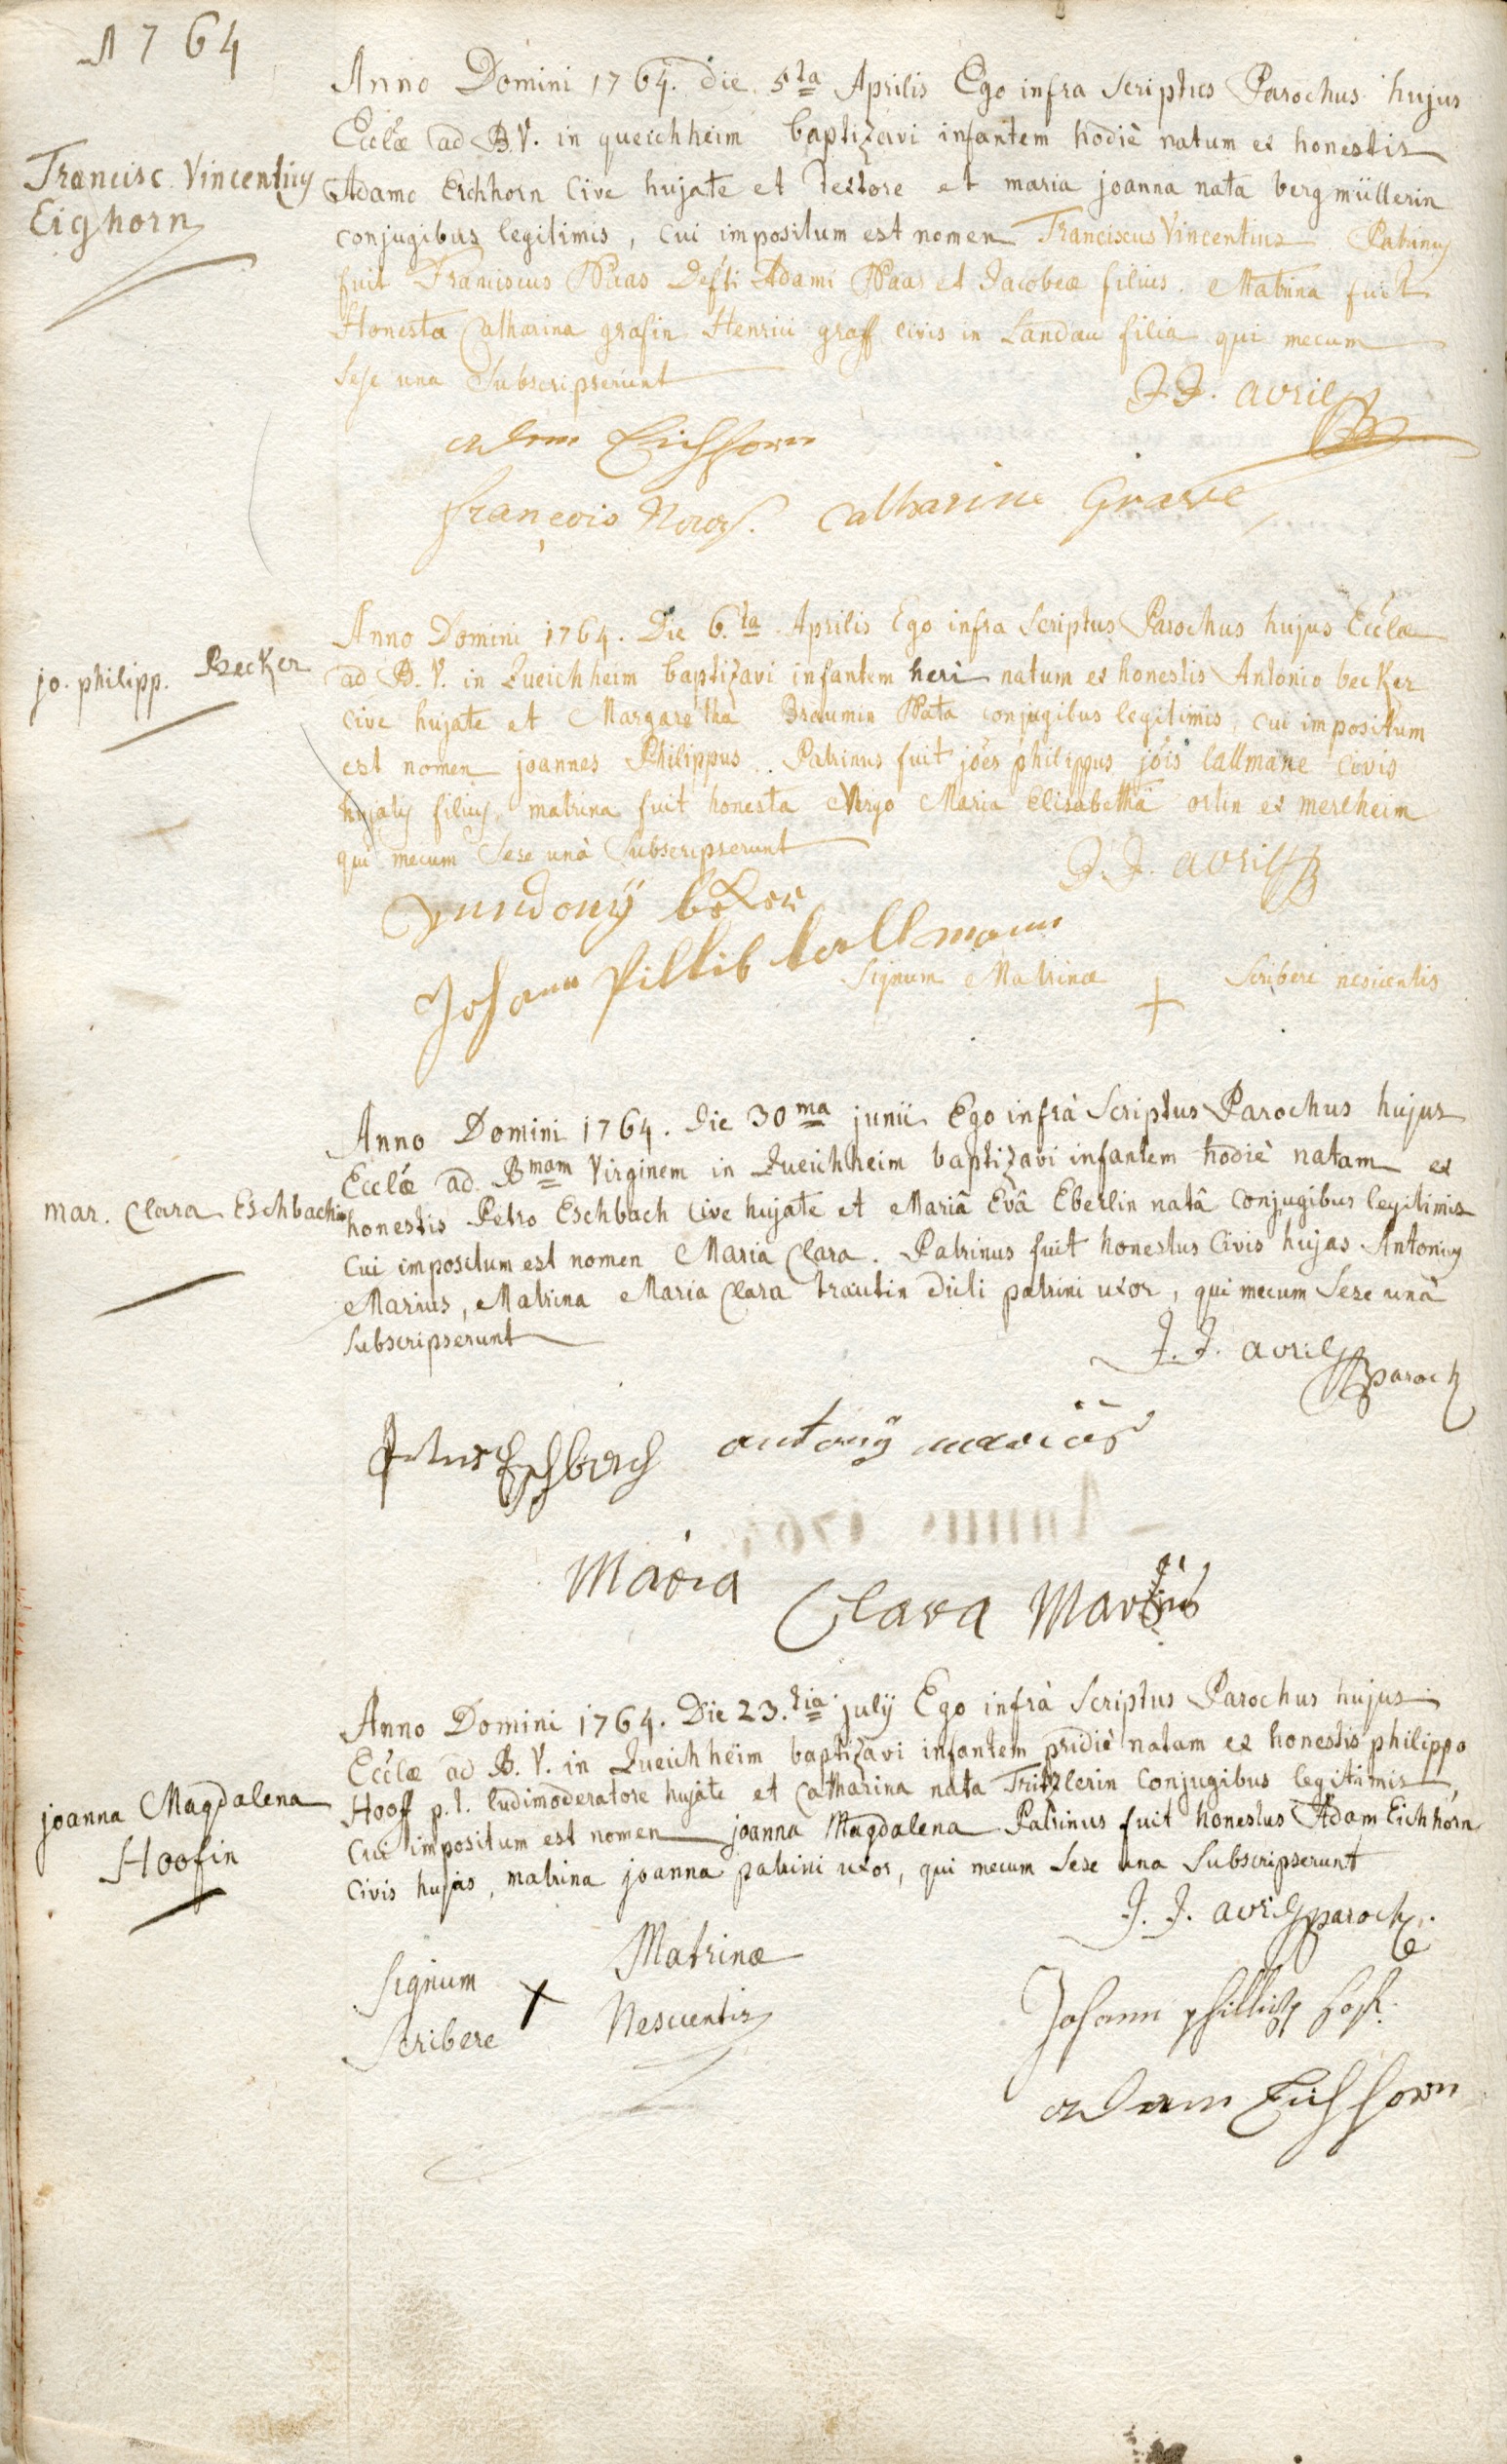 1764
Anno Domini 1764. die 5ta Aprilis Ego infra Scriptus Parochus hujus
Ecclæ ad B.V. in queichheim baptizavi infantem hodiè natum ex honestis
Francisc. Vincentius
Eighorn
Adamo Eichhorn Cive hujate et textore et maria joanna nata bergmüllerin
conjugibus legitimis, cui impositum est nomen Franciscus Vincentius Patrinus
fuit Franciscus Naas Defti Adami Naas et Jacobeæ filius. Matrina fuit
Honesta Catharina grafin Henrici graff civis in Landau filia qui mecum
Sese una Subscripserunt
J.J. avril
adam Eichhorn
françois Naas. Catharine Grave
Anno Domini 1764. Die 6.ta Aprilis Ego infra Scriptus Parochus hujus Ecclæ
jo. philipp. Becker
ad B.V. in Queichheim baptizavi infantem heri natum ex honestis Antonio becker
cive hujate et Margaretha Braumin Nata conjugibus legitimis, cui impositum
est nomen joannes Philippus. Patrinus fuit jóes philippus jóis lallmane civis
hujatis filius, matrina fuit honesta Virgo Maria Elisabetha ortin ex merlheim
qui mecum Sese unà Subscripserunt
J.J. avril
Johann Pillib Lallmann
Signum Matrinæ + Scribere nescientis
Anno Domini 1764. Die 30ma junii Ego infrà Scriptus Parochus hujus
Ecclæ ad Bmam Virginem in Queichheim baptizavi infantem hodiè natam ex
mar. Clara Eschbachin
honestis Petro Eschbach Cive hujate et Mariâ Evâ Eberlin natâ conjugibus legitimis
Cui impositum est nomen Maria Clara. Patrinus fuit honestus Civis hujas Antonius
Marius, Matrina Maria Clara trautin dicti patrini uxor, qui mecum Sese unà
Subscripserunt
J.J. avril paroch
Petrus Eschbach antony marius
Maria
Clara Marius
Anno Domini 1764. Die 23.tia july Ego infrà Scriptus Parochus hujus
Ecclæ ad B.V. in Queichheim baptizavi infantem pridiè natam ex honestis philippo
joanna Magdalena
Hoofin
Hooff p.t. ludimoderatore hujate et Catharina nata Tritzlerin Conjugibus legitimis,
Cui impositum est nomen joanna Magdalena Patrinus fuit honestus Adam Eichhorn
Civis hujas, matrina joanna patrini uxor, qui mecum Sese una Subscripserunt
J.J. avril paroch.
Signum + Matrinæ
Scribere Nescientis
Johann phillipp Hoff.
adam Eichhorn